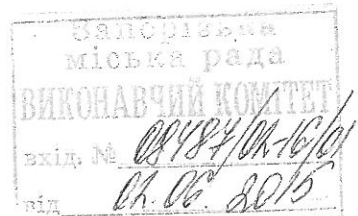 Запорізька
міська рада
ВИКОНАВЧИЙ КОМІТЕТ
вхід. № 08487/02-16/01
від 02.06.2015